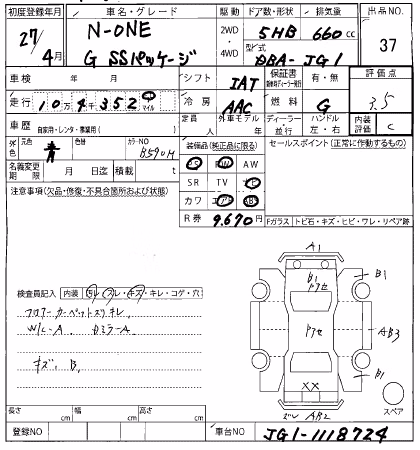 初度登録年月 車名・グレード 駆動 ドア数・形状 排気量 出品NO
27/4月 N-ONE 2WD・4WD 5HB 660cc 37
G SSパッケージ 型式 DBA-JG1
車検 年 月 シフト IAT 保証書 有・無 評価点
走行 10万4千352 マイル 冷房 AAC 燃料 G 3.5
車歴 自家用・レンタ・事業用( ) 定員 人 外車モデル 年 ディーラー・並行 ハンドル 左・右 内装評価 C
外色 元色 青 色替 カラーNO B590M 装備品(純正品に限る) セールスポイント(正常に作動するもの)
名義変更期限 月 日迄 積載 t PS PW AW
注意事項(欠品・修復・不具合箇所および状態) SR TV
カワ エアB ABS
R券 9,670
Fガラス トビ石・キズ・ヒビ・ワレ・リペア跡
A1
B1
B1
検査員記入 内装 ヨゴレ・スレ・キズ・キレ・コゲ・穴
フロアーカーペットスリキレ
W/L-A Dミラー A
キズ B
AB3
B1
XX
AB2
スペア
長さ cm 幅 cm 高さ cm
登録NO 車台NO JG1-1118724